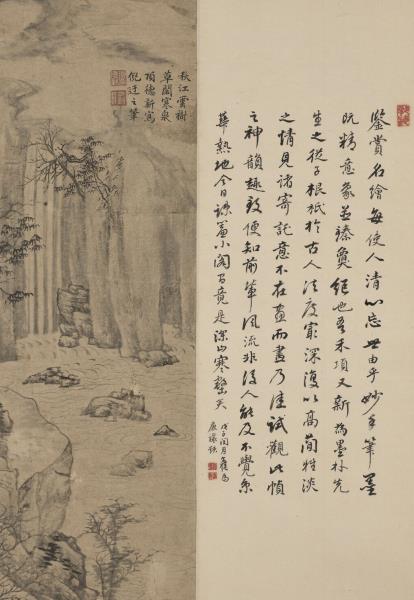 鑒賞名繪每使人清心忘世由乎妙手筆墨
既精意象並臻奠絕也吾禾項又新為墨林先
生之從子根柢於古人法度寂深復以高簡恬淡
之情見諸寄託意不在畫而畫乃佳試觀此幀
之神韻趣致便知前輩風流非後人能及不覺東
華熱地今日小閣竟是深山寒壑矣
戊子閏月
秋江雲樹
草閣寒泉
項德新寫
倪迂之筆